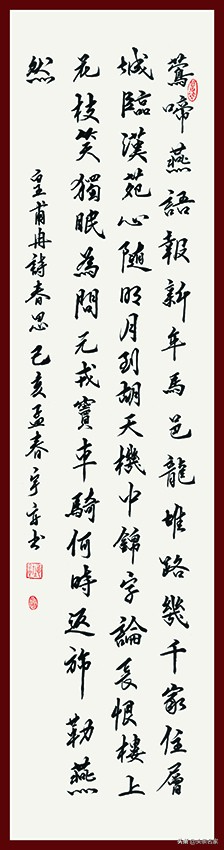 鶯啼燕語報新年馬邑龍堆路幾千家住層
城臨漢苑心隨明月到胡天機中錦字論長恨樓上
花枝笑獨眠為問元戎竇車騎何時返旆勒燕
然
皇甫冉詩春思己亥孟春宇书